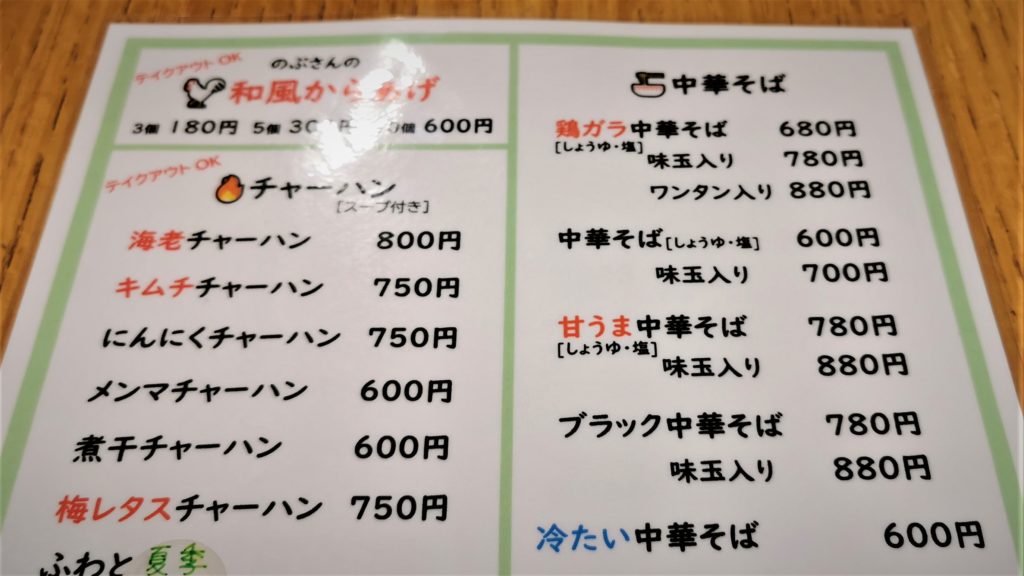 テイクアウト OK
のぶさんの
和風からあげ
3個 180円 5個 300円 個 600円
テイクアウト OK
チャーハン
[スープ付き]
海老チャーハン 800円
キムチチャーハン 750円
にんにくチャーハン 750円
メンマチャーハン 600円
煮干チャーハン 600円
梅レタスチャーハン 750円
ふわと 夏季
中華そば
鶏ガラ中華そば 680円
[しょうゆ・塩]
味玉入り 780円
ワンタン入り 880円
中華そば[しょうゆ・塩] 600円
味玉入り 700円
甘うま中華そば 780円
[しょうゆ・塩]
味玉入り 880円
ブラック中華そば 780円
味玉入り 880円
冷たい中華そば 600円